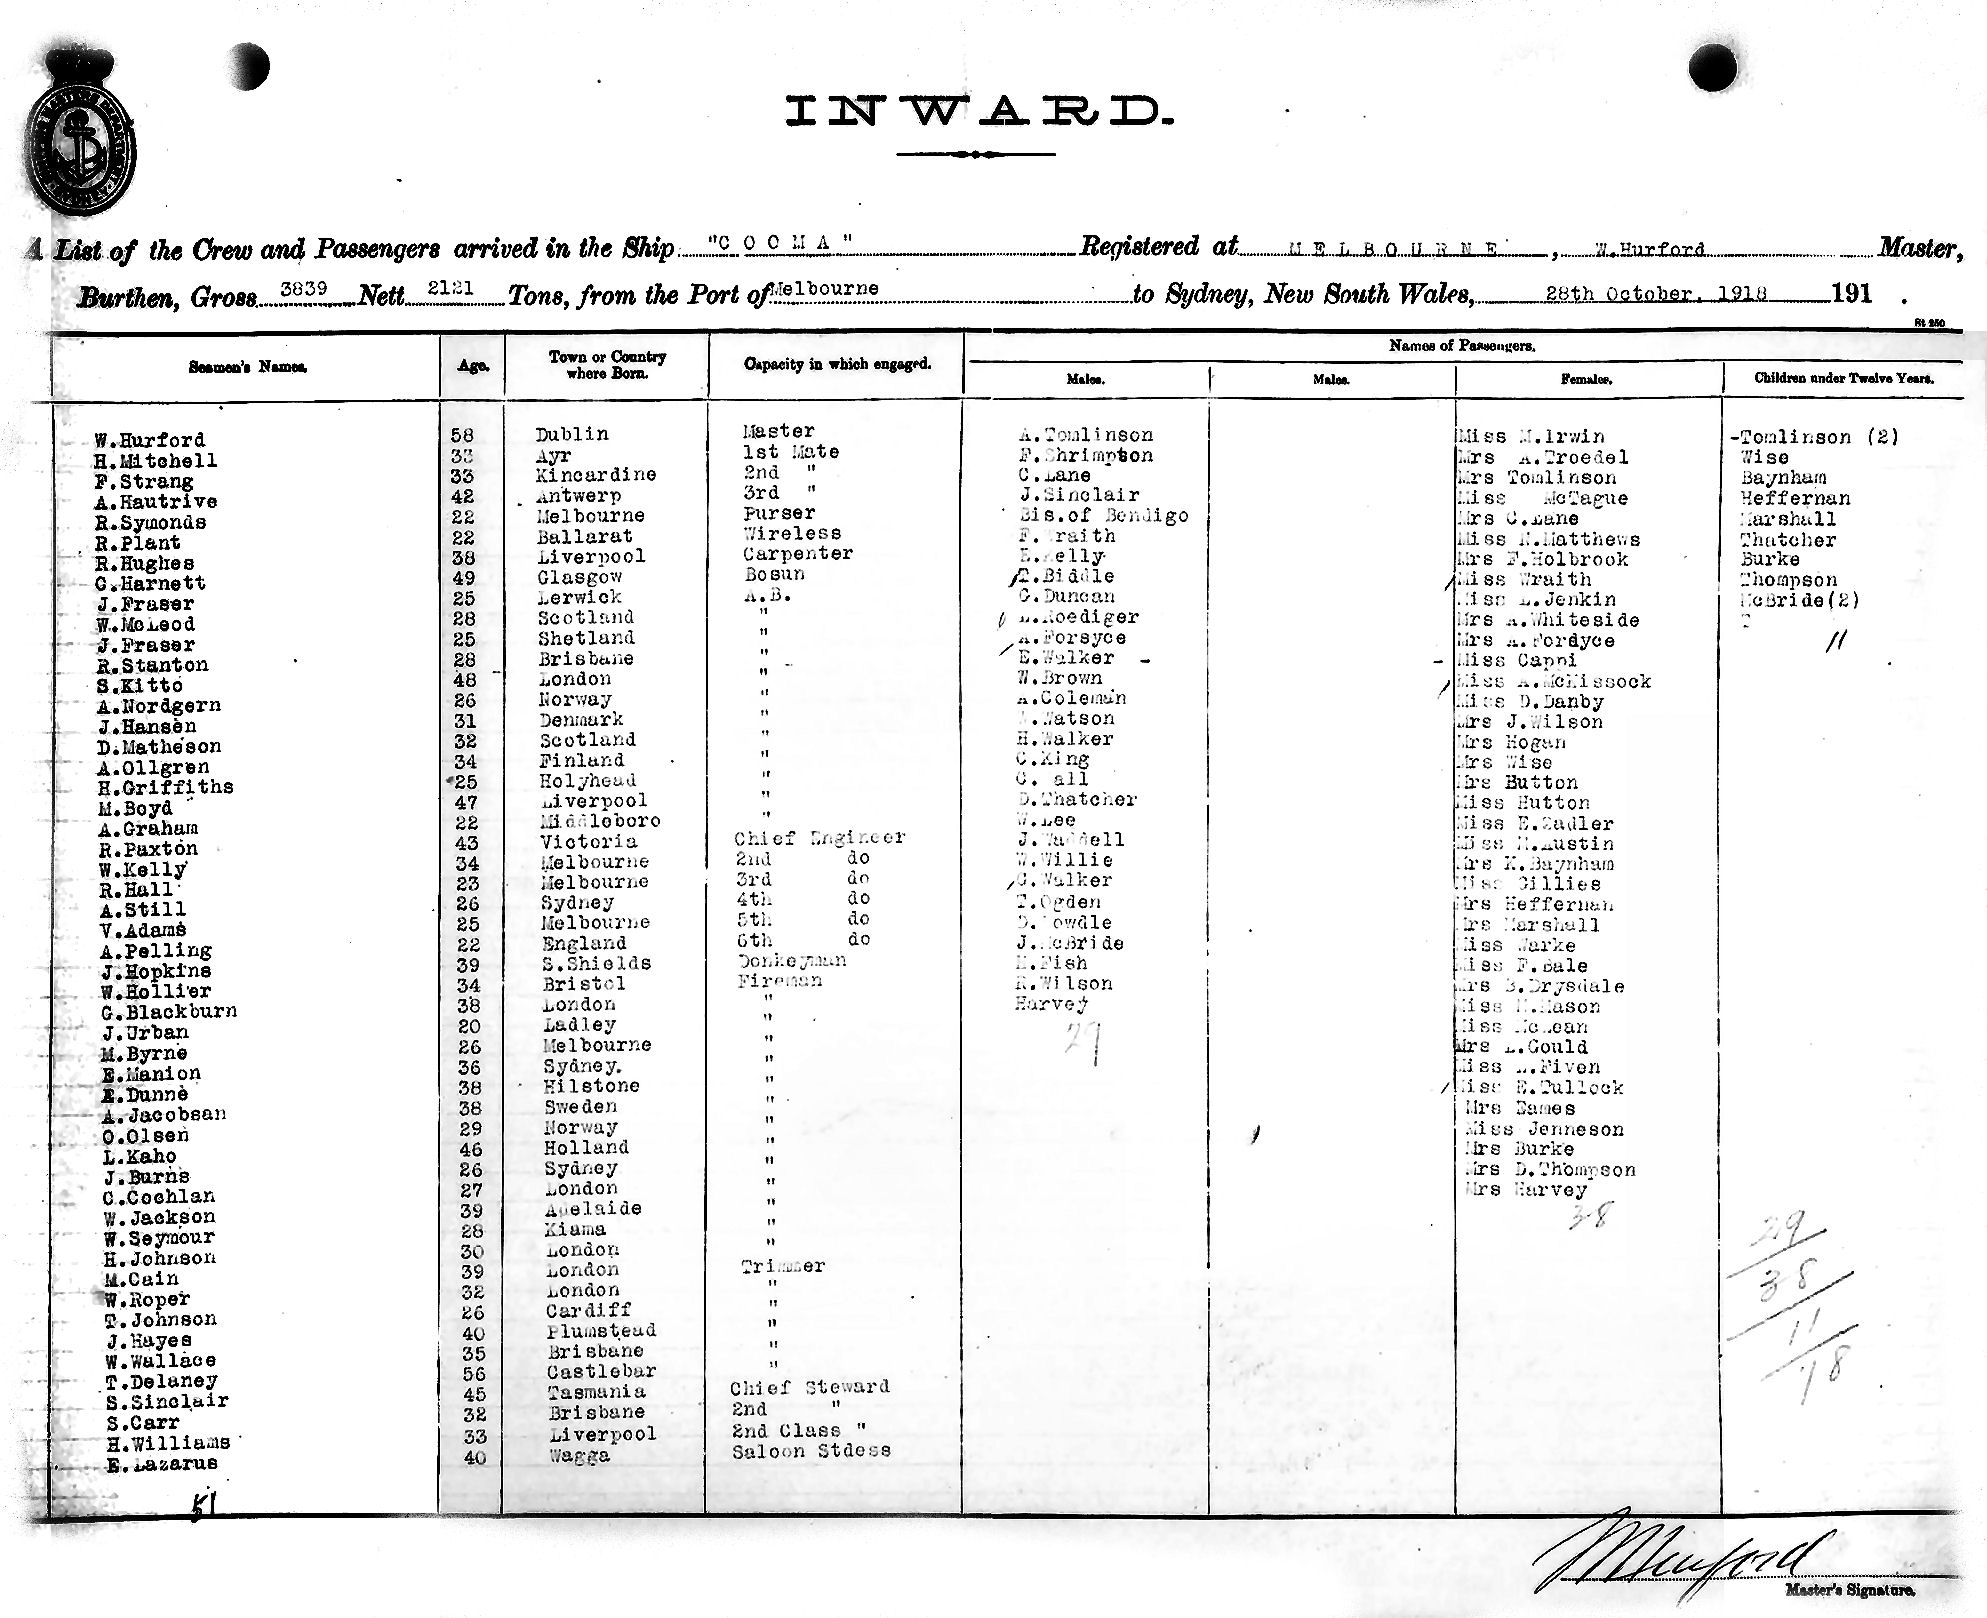 INWARD.
A List of the Crew and Passengers arrived in the Ship "COOMA" Registered at MELBOURNE, W.Hurford Master,
Burthen, Gross 3839 Nett 2121 Tons, from the Port of Melbourne to Sydney, New South Wales, 28th October. 1918 191 .
St 250
Seamen's Names. Age. Town or Country where Born. Capacity in which engaged. Names of Passengers.
Males. Males. Females. Children under Twelve Years.
W.Hurford 58 Dublin Master A.Tomlinson Miss M.Irwin -Tomlinson (2)
H.Mitchell 33 Ayr 1st Mate F.Shrimpton Mrs A.Troedel Wise
F.Strang 33 Kincardine 2nd " C.Lane Mrs Tomlinson Baynham
A.Hautrive 42 Antwerp 3rd " J.Sinclair Miss McTague Heffernan
R.Symonds 22 Melbourne Purser Bis.of Bendigo Mrs C.Lane Marshall
R.Plant 22 Ballarat Wireless F.Wraith Miss N.Matthews Thatcher
R.Hughes 38 Liverpool Carpenter Kelly Mrs F.Holbrook Burke
C.Harnett 49 Glasgow Bosun T.Biddle Miss Wraith Thompson
J.Fraser 25 Lerwick A.B. G.Duncan Miss L.Jenkin McBride(2)
W.McLeod 28 Scotland " L.Roediger Mrs A.Whiteside
J.Fraser 25 Shetland " A.Forsyce Mrs A.Fordyce 11
R.Stanton 28 Brisbane " E.Walker - - Miss Cappi
S.Kitto 48 London " W.Brown Miss A.McKissock
A.Nordgern 26 Norway " A.Coleman Miss D.Danby
J.Hansen 31 Denmark " Watson Mrs J.Wilson
D.Matheson 32 Scotland " H.Walker Mrs Hogan
A.Ollgren 34 Finland " C.King Mrs Wise
H.Griffiths 25 Holyhead " Mrs Button
M.Boyd 47 Liverpool " D.Thatcher Miss Hutton
A.Graham 22 Middleboro " W.Lee Miss E.Sadler
R.Paxton 43 Victoria Chief Engineer J.Waddell Miss M.Austin
W.Kelly 34 Melbourne 2nd do W.Willie Mrs K.Baynham
R.Hall 23 Melbourne 3rd do G.Walker Miss Gillies
A.Still 26 Sydney 4th do T.Ogden Mrs Heffernan
V.Adams 25 Melbourne 5th do D.Dowdle Mrs Marshall
A.Pelling 22 England 6th do J.McBride Miss Warke
J.Hopkins 39 S.Shields Donkeyman Fish Miss F.Bale
W.Hollier 34 Bristol Fireman R.Wilson Mrs B.Drysdale
G.Blackburn 38 London " Harvey Miss M.Mason
J.Urban 20 Ladley " 29 Miss McLean
M.Byrne 26 Melbourne " Mrs L.Gould
E.Manion 36 Sydney. " Miss Fiven
E.Dunne 38 Hilstone " Miss E.Tullock
A.Jacobsan 38 Sweden " Mrs Eames
O.Olsen 29 Norway " Miss Jenneson
L.Kaho 46 Holland " Mrs Burke
J.Burns 26 Sydney " Mrs D.Thompson
C.Coohlan 27 London " Mrs Harvey
W.Jackson 39 Adelaide " 38 29
W.Seymour 28 Kiama "
H.Johnson 30 London "
M.Cain 39 London Trimmer 38
W.Roper 32 London "
T.Johnson 26 Cardiff " 11
J.Hayes 40 Plumstead "
W.Wallace 35 Brisbane " 78
T.Delaney 56 Castlebar "
S.Sinclair 45 Tasmania Chief Steward
S.Carr 32 Brisbane 2nd "
H.Williams 33 Liverpool 2nd Class "
E.Lazarus 40 Wagga Saloon Stdess
51
W Hurford
Master's Signature.